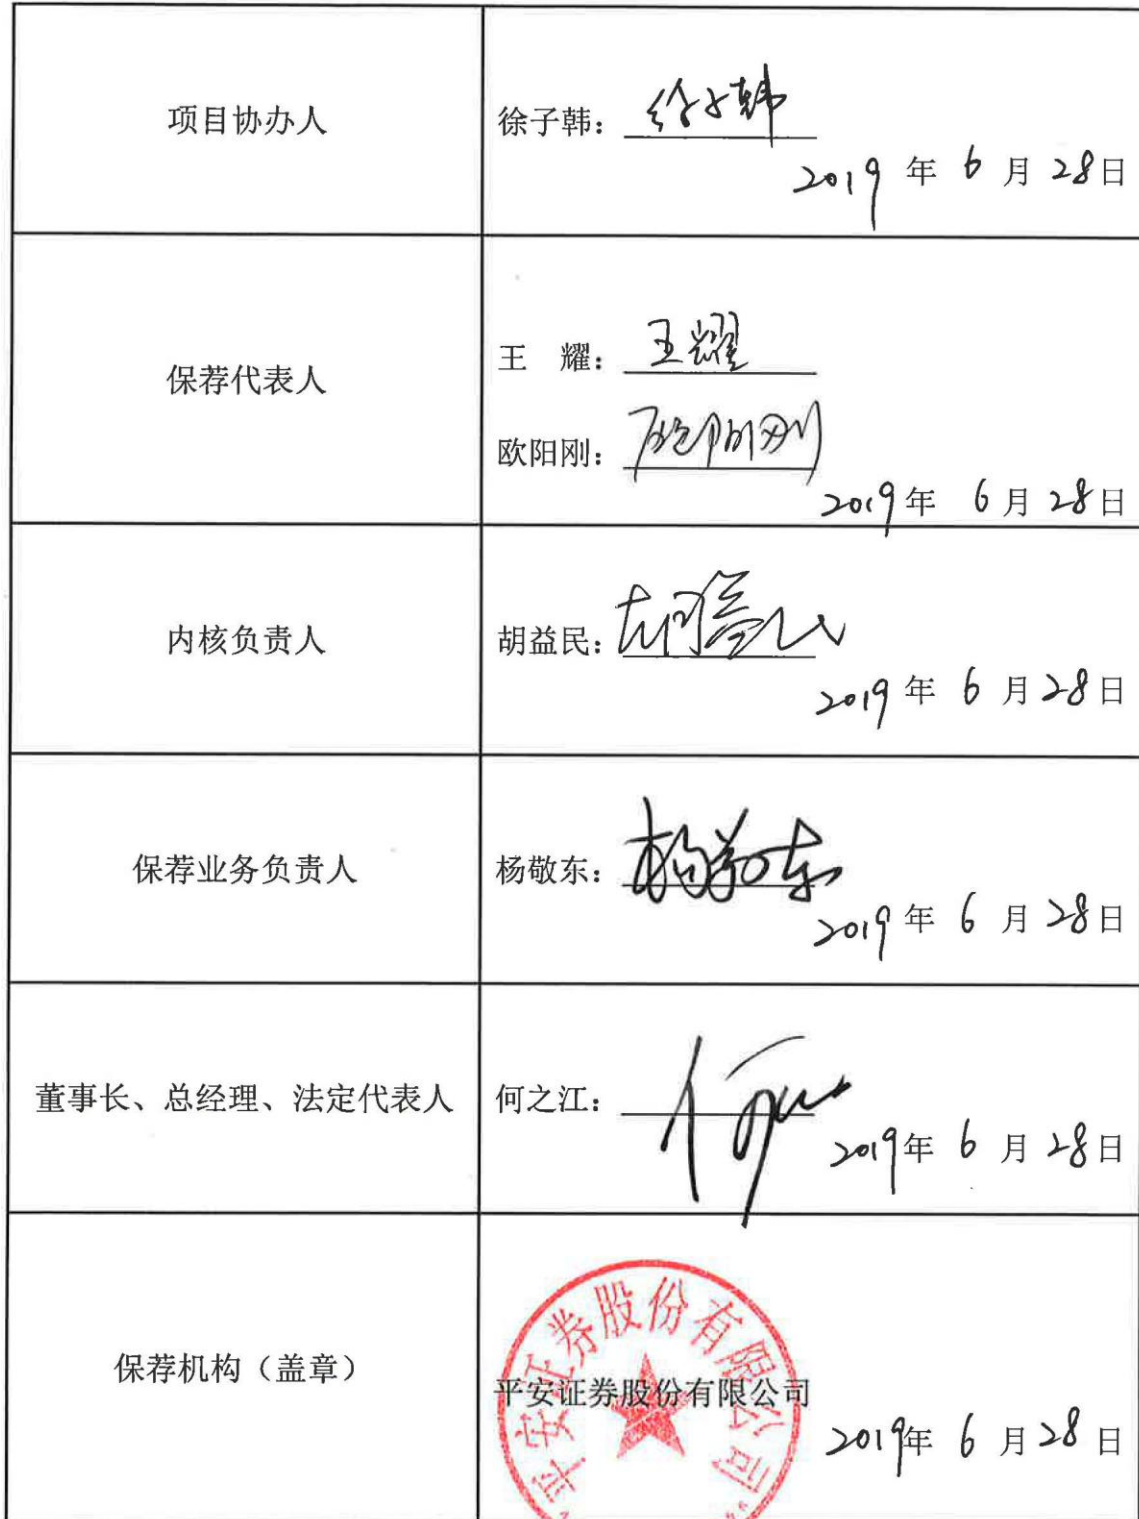 项目协办人
徐子韩：徐子韩
2019 年 6 月 28日
保荐代表人
王 耀：王耀
欧阳刚：欧阳刚
2019年 6 月 28日
内核负责人
胡益民：胡益民
2019 年 6 月 28日
保荐业务负责人
杨敬东：杨敬东
2019 年 6 月 28日
董事长、总经理、法定代表人
何之江：
2019年 6 月 28日
保荐机构（盖章）
平安证券股份有限公司
平安证券股份有限公司
2019年 6 月 28 日